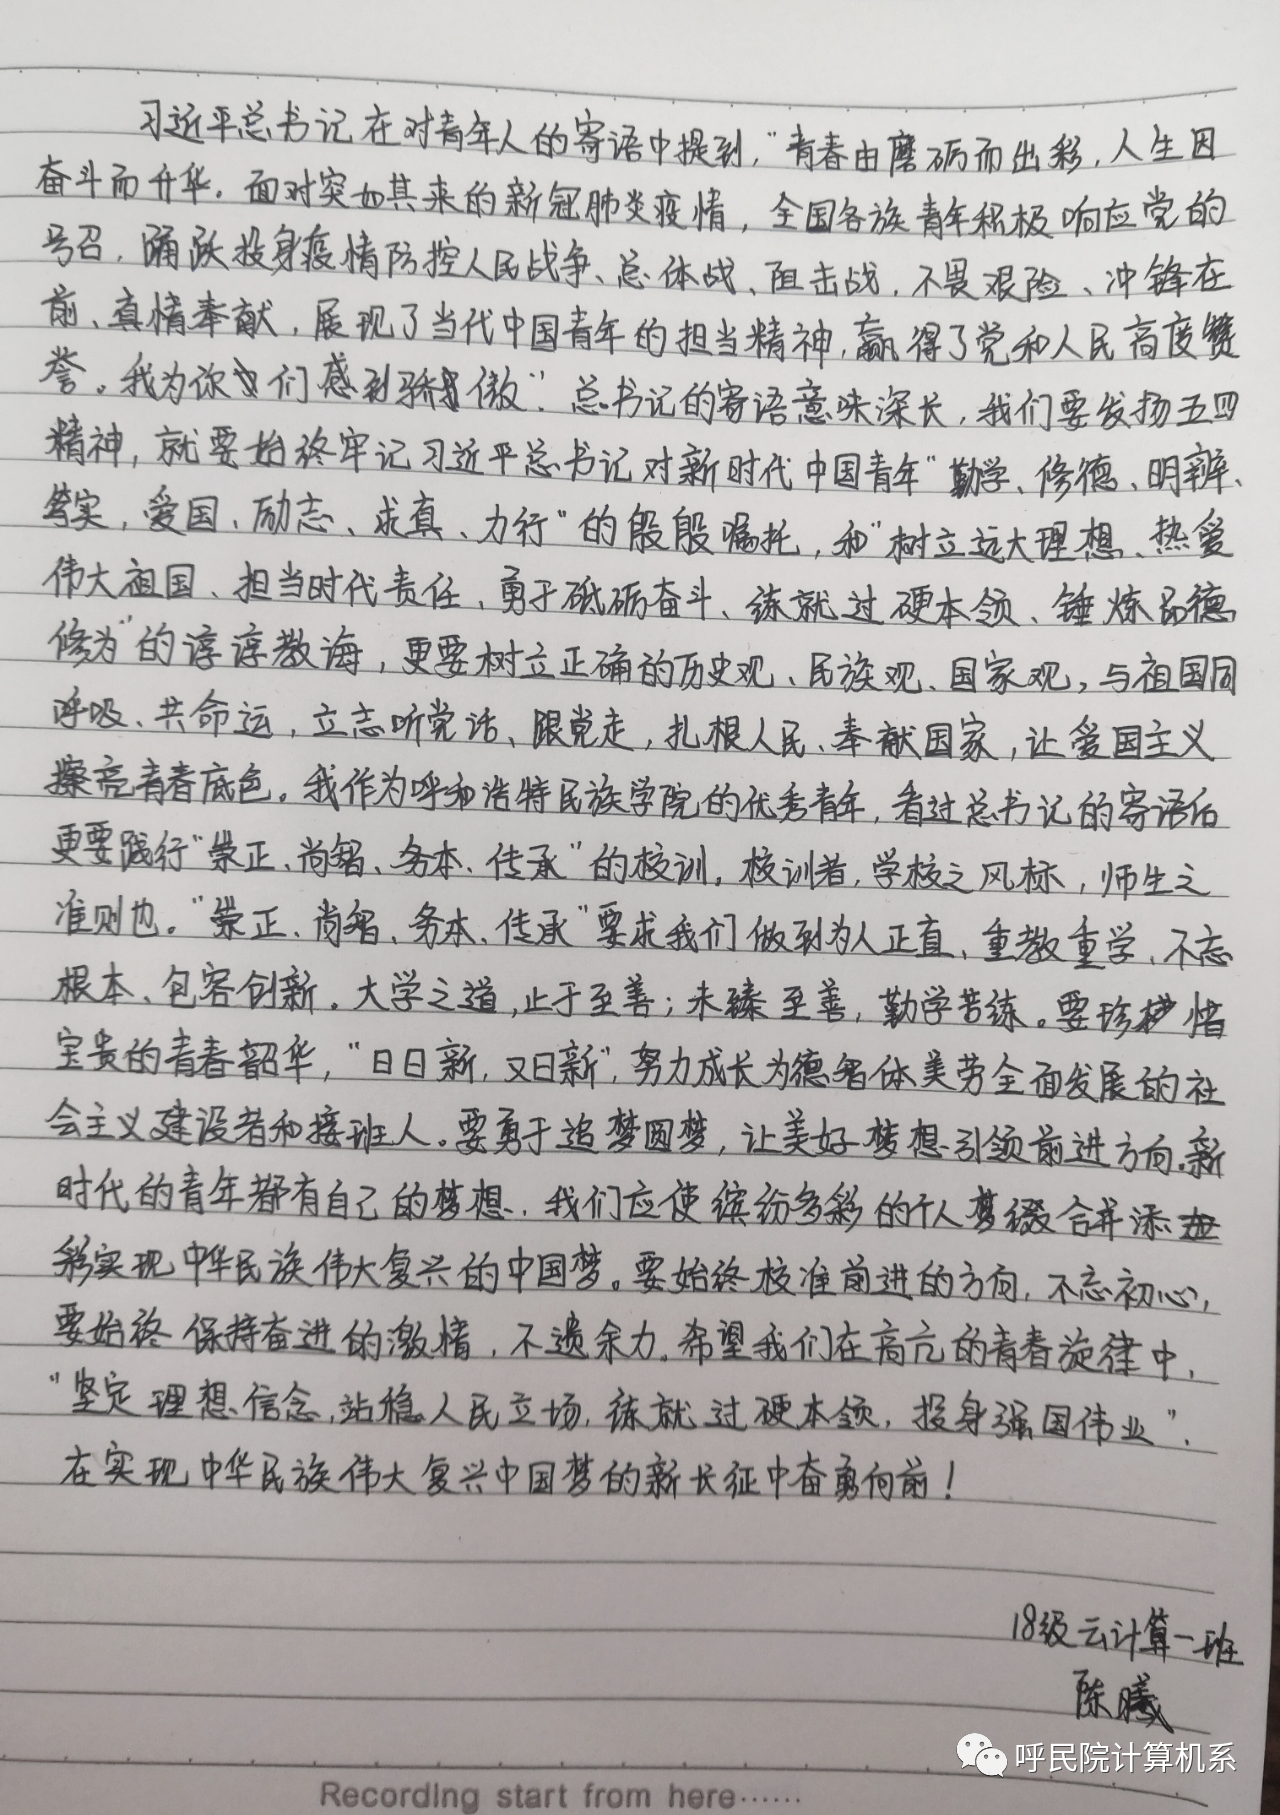 习近平总书记在对青年人的寄语中提到，“青春由磨砺而出彩，人生因
奋斗而升华。面对突如其来的新冠肺炎疫情，全国各族青年积极响应党的
号召，踊跃投身疫情防控人民战争、总体战、阻击战，不畏艰险、冲锋在
前、真情奉献，展现了当代中国青年的担当精神，赢得了党和人民高度赞
誉。我为你们感到骄傲”。总书记的寄语意味深长，我们要发扬五四
精神，就要始终牢记习近平总书记对新时代中国青年“勤学、修德、明辨、
笃实，爱国、励志、求真、力行”的殷殷嘱托，和“树立远大理想、热爱
伟大祖国、担当时代责任、勇于砥砺奋斗、练就过硬本领、锤炼品德
修为”的谆谆教诲，更要树立正确的历史观、民族观、国家观，与祖国同
呼吸、共命运，立志听党话、跟党走，扎根人民、奉献国家，让爱国主义
擦亮青春底色。我作为呼和浩特民族学院的优秀青年，看过总书记的寄语后
更要践行“崇正、尚智、务本、传承”的校训。校训者，学校之风标，师生之
准则也。“崇正、尚智、务本、传承”要求我们做到为人正直、重教重学、不忘
根本、包容创新。大学之道，止于至善；未臻至善，勤学苦练。要珍惜
宝贵的青春韶华，“日日新，又日新”，努力成长为德智体美劳全面发展的社
会主义建设者和接班人。要勇于追梦圆梦，让美好梦想引领前进方向。新
时代的青年都有自己的梦想，我们应使缤纷多彩的个人梦缀合并添
彩实现中华民族伟大复兴的中国梦。要始终校准前进的方向，不忘初心，
要始终保持奋进的激情，不遗余力。希望我们在高亢的青春旋律中，
“坚定理想信念，站稳人民立场，练就过硬本领，投身强国伟业”，
在实现中华民族伟大复兴中国梦的新长征中奋勇向前！
18级云计算一班
陈曦
呼民院计算机系
Recording start from here……